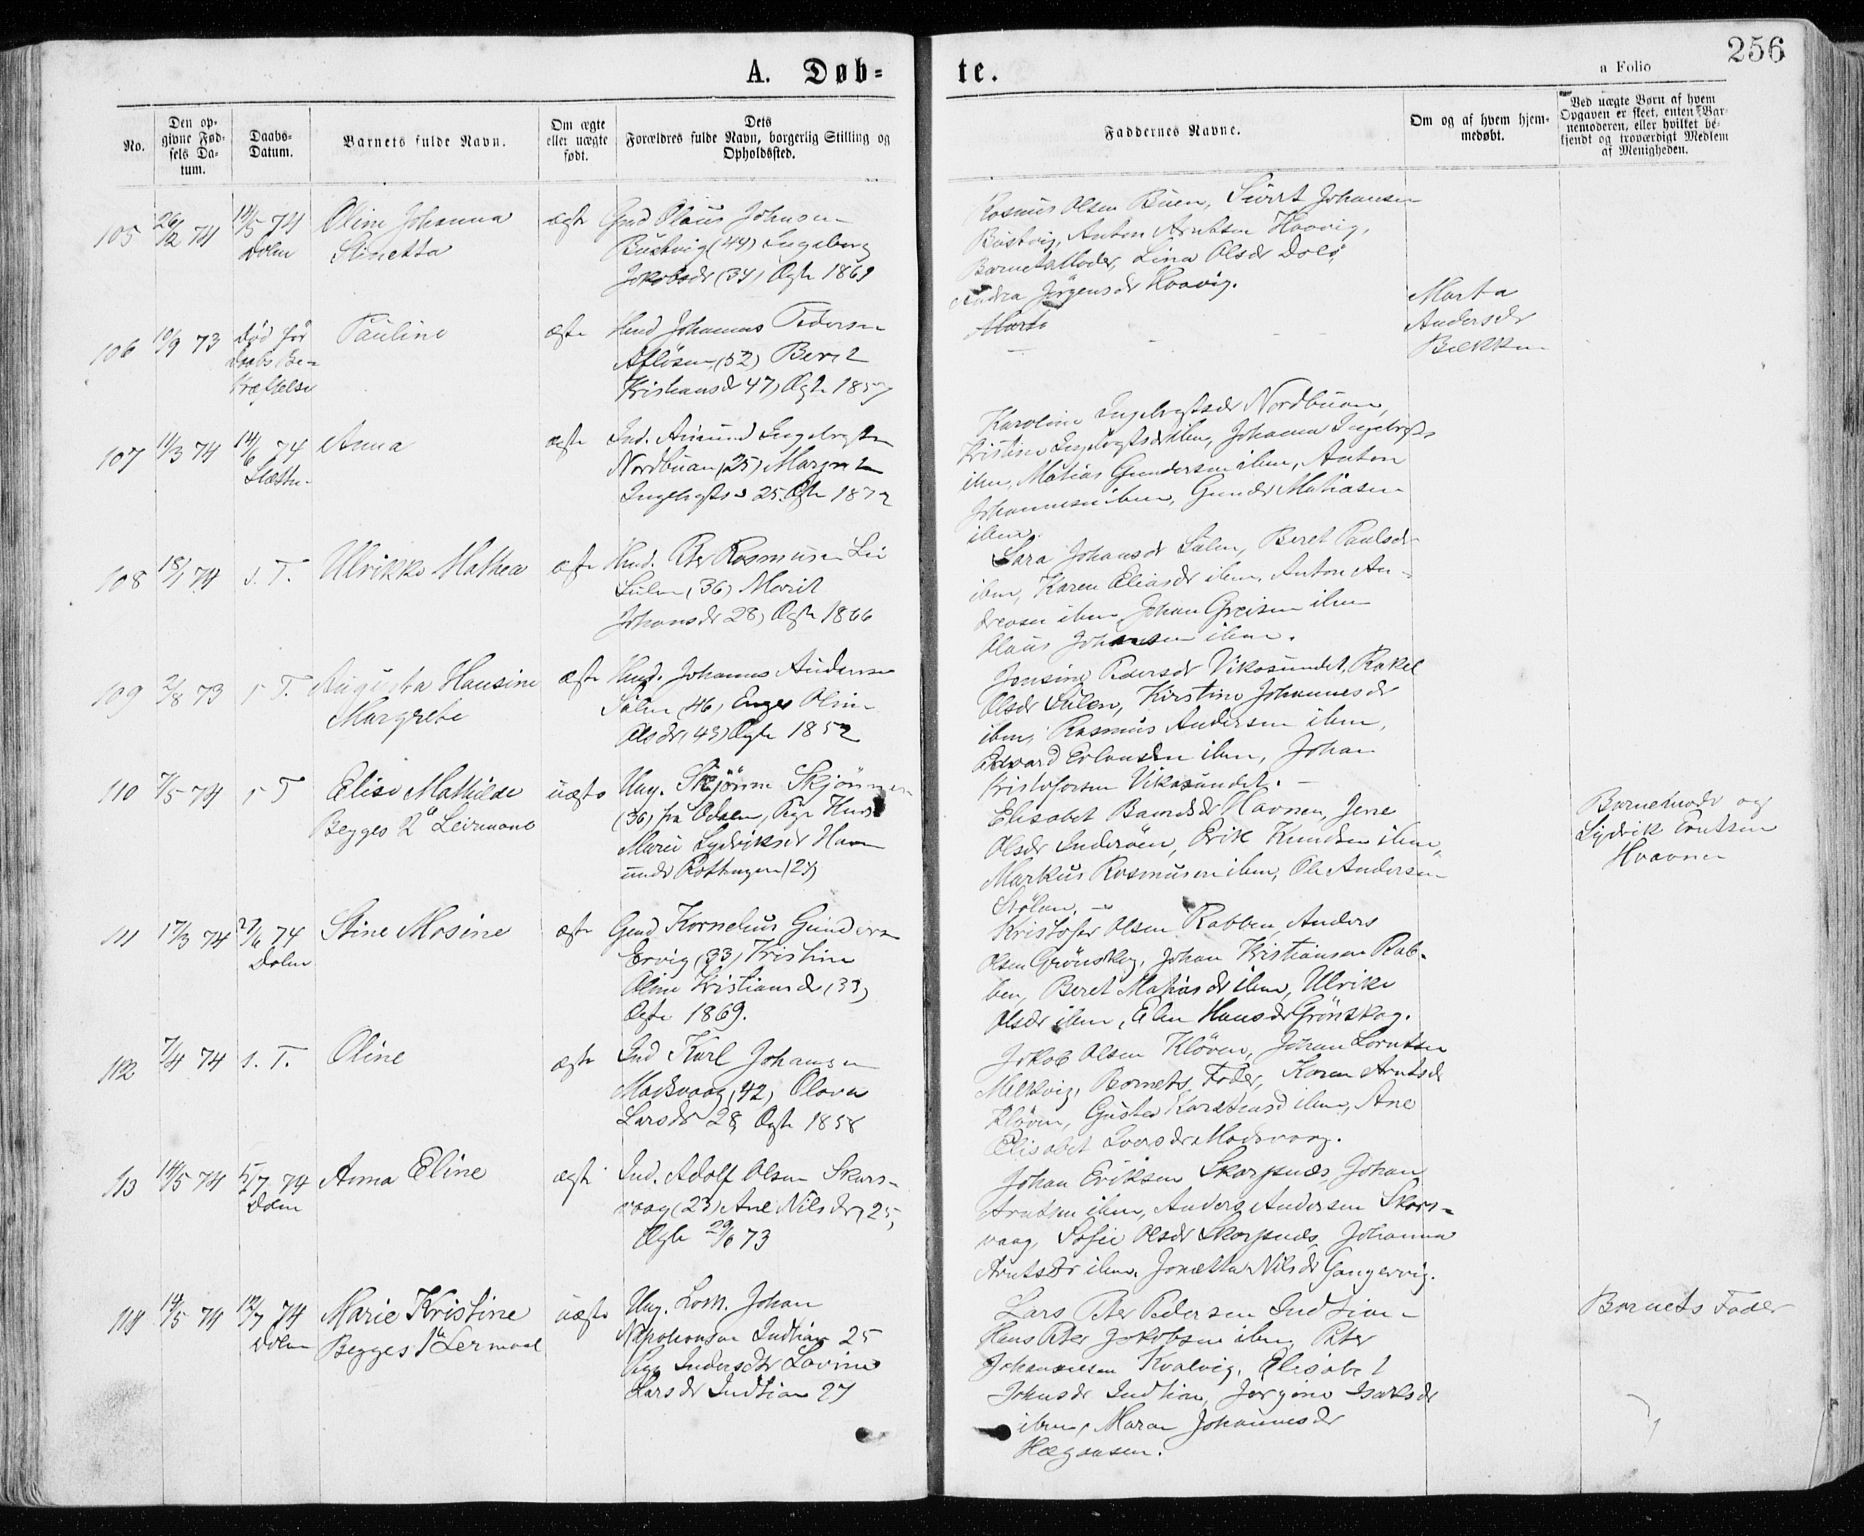 256
A. Døb-
te.
a Folio
No.
Den op-
givne Fød-
sels Da-
tum.
Daabs-
Datum.
Barnets fulde Navn.
Om ægte
eller uægte
født.
Dets
Forældres fulde Navn, borgerlig Stilling og
Opholdssted.
Faddernes Navne.
Om og af hvem hjem-
medøbt.
Ved uægte Børn af hvem
Opgaven er skeet, enten Bar-
nemoderen, eller hvilket be-
kjendt og troværdigt Medlem
af Menigheden.
105 26/2 74 14/5 74
Dolm
Oline Johanna
Stinetta
ægte
Gmd Olaus Johnsen
Bustvig (44) Ingeborg
Jakobsdr (34) Ægte 1869
Rasmus Olsen Buen, Sivert Johansen
Bustvig, Anton Arntsen Haavig,
Barnets Moder, Lina Olsdr Dolø
Andrea Jørgensdr Haavig.
106 10/9 73 Død før
Daabs Be-
kræftelse
Pauline
ægte
Hmd Johannes Pedersen
(52) Beret
Kristiansdr 47) Ægte 1857
Marta
Marta
Andersdr
Bækken
107 11/3 74 14/6 74
Slætten
Anna
ægte
Ind. Amund Ingebrigtsen
Nordbuan (25) Margrete
Ingebrigtsd 25. Ægte 1872
Karoline Ingebrigtsdr Nordbuan,
Kristine Ingebrigtsdr ibm, Johanna Ingebrigtsdr
ibm, Matias Gundersen ibm, Anton
Johannesen ibm, Gunder Matiasen
ibm.
108 18/1 74 s. T.
Ulrikke Mathea
ægte
Hmd. Peter Rasmusen
Sulen (36) Marit
Johansdr 28) Ægte 1866
Sara Johansdr Sulen, Beret Paulsdr
ibm, Karen Eliasdr ibm, Anton An-
dreasen ibm, Johan Greisen ibm
Olaus Johansen ibm.
109 2/8 73 s T.
Augusta Hansine
Margrete
ægte
Hmd. Johannes Andersen
Sulen (46) Oline
Olsdr (43) Ægte 1852
Jonsine Pedersdr Vikasundet, Rakel
Olsdr Sulen, Kirstine Johannesdr
ibm, Rasmus Andersen ibm,
Edvard Erlansen ibm, Johan
Kristofersen Vikasundet.
110 7/5 74 s T
Elise Mathilde
Begges 2det Leiermaal
uægte
Ung. Skjönne
(36) fra Pige
Marie Lydriksdr Havn
under (29)
Elisabet Havnen, Jene
Olsdr Inderöen, Erik Knudsen ibm,
Markus Rasmusen ibm, Ole Andersen
Stölan.
Barnemoder og
Lydrik Knutsen
Havnen
111 17/3 74 27/6 74
Dolm
Stine Mosine
ægte
Gmd Kornelius Gundersen
Ervig (33) Kristine
Oline Kristiansdr (33)
Ægte 1869.
Kristofer Olsen Rabben, Anders
Olsen Grönskag, Johan Kristiansen Rab-
ben, Beret Matiasdr ibm, Ulrike
Olsdr ibm, Elen Hansdr Grönskag.
112 7/4 74 s. T.
Oline
ægte
Ind Karl Johansen
Madsvaag (42) Olava
Larsdr 28 Ægte 1858
Jakob Olsen Klöven, Johan Lorntsen
Melkvig, Barnets Fader, Karen Arntsdr
Klöven, Gustava ibm, Ane
Elisabet Iversdr Madsvaag.
113 14/5 74 5/7 74
Dolm
Anna Eline
ægte
Ind. Adolf Olsen Skars-
vaag (23) Ane Nilsdr, 25,
Ægte 29/6 73
Johan Eriksen Skarpnes, Johan
Arntsen ibm, Anders Andersen Skars-
vaag, Sofie Olsdr Skarpnes, Johanna
Arntsdr ibm, Jonetta Nilsdr Gangervig.
114 14/5 74 12/7 74
Dolm
Marie Kristine
Begges 1ste Leiermaal
uægte
Ung. Johan
Napoleonsen Indlian 25
Pige Lovine
Larsdr Indlian 27
Lars Peter Pedersen Indlian
Hans Peter Jakobsen ibm, Peter
Johannesen Kvalvig, Elisabet
Johnsdr Indlian, Jørgine Isaksdr
ibm, Maren Johannesdr
Hægaasen.
Barnets Fader